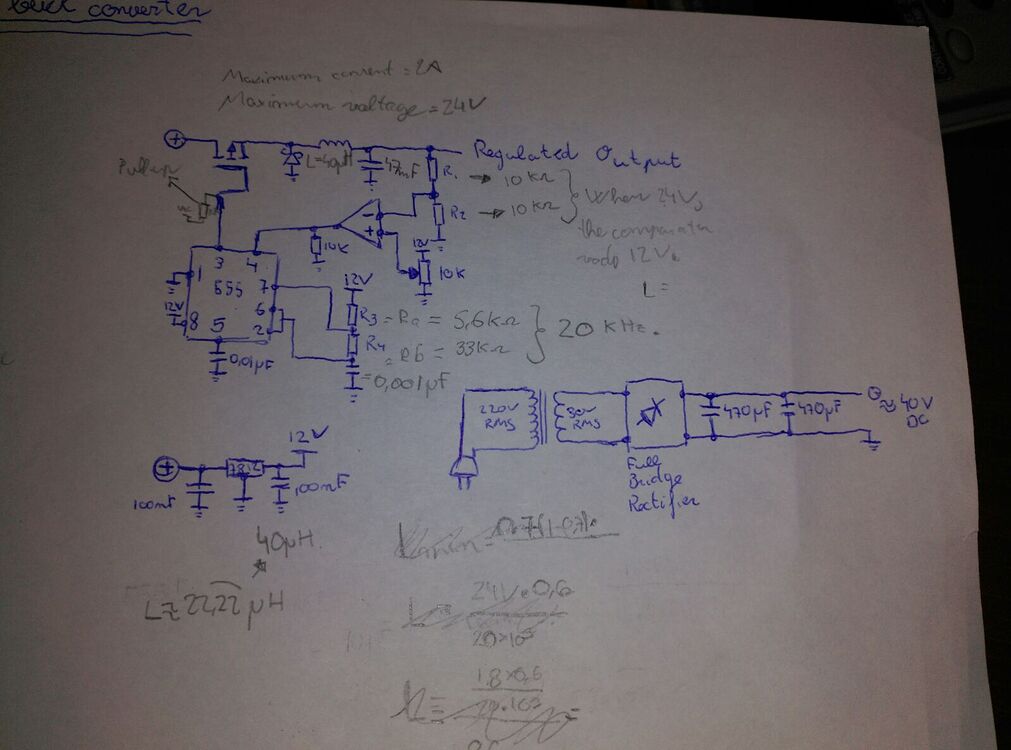 buck converter
Maximum current = 2A
Maximum voltage = 24V
Regulated Output
Pull-up
L=40µH
47mF
R1 → 10 KΩ
R2 → 10 KΩ
When 24V,
the comparator
12V.
L =
10K
12V
10K
3 4
1
7
555
6
12V
8 5 2
0,01µF
12V
R3 = Ra = 5,6kΩ
R4 = Rb = 33kΩ
20 KHz.
= 0,001µF
220V
RMS
30V
RMS
470µF
470µF
≈ 40V
DC
Full
Bridge
Rectifier
12V
7812
100nF
100nF
40µH.
L = 22,22 µH
24V . 0,6
20×10³
1.8×0,6